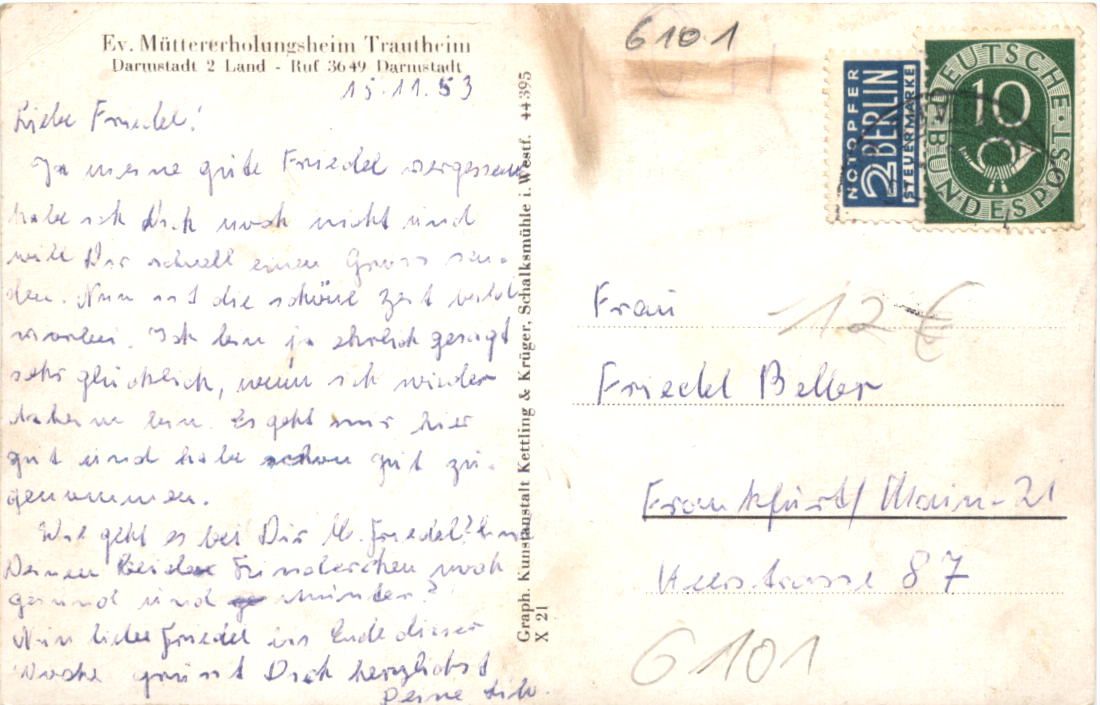 Ev. Müttererholungsheim Trautheim
Darmstadt 2 Land - Ruf 3649 Darmstadt
15.11.53
Liebe Friedel!
Ja meine gute Friedel vergessen
habe ich Dich noch nicht und
will Dir schnell einen Gruss sen-
den. Nun ist die schöne Zeit
vorbei. Ich bin ja ehrlich gesagt
sehr glücklich, wenn ich wieder
daheim bin. Es geht mir hier
gut und habe schon gut zu-
genommen.
Wie geht es bei Dir lb. Friedel?
Deinen beiden noch
gesund und munter?
Nun liebe Friedel bis Ende dieser
Woche grüsst Dich herzlichst
Deine
Graph. Kunstanstalt Kettling & Krüger, Schalksmühle i. Westf. 44395
X 21
6101
NOTOPFER
2 BERLIN
STEUERMARKE
DEUTSCHE
BUNDESPOST
10
Frau
12 €
Friedel Beller
Frankfurt/Main-21
Heerstrasse 87
6101